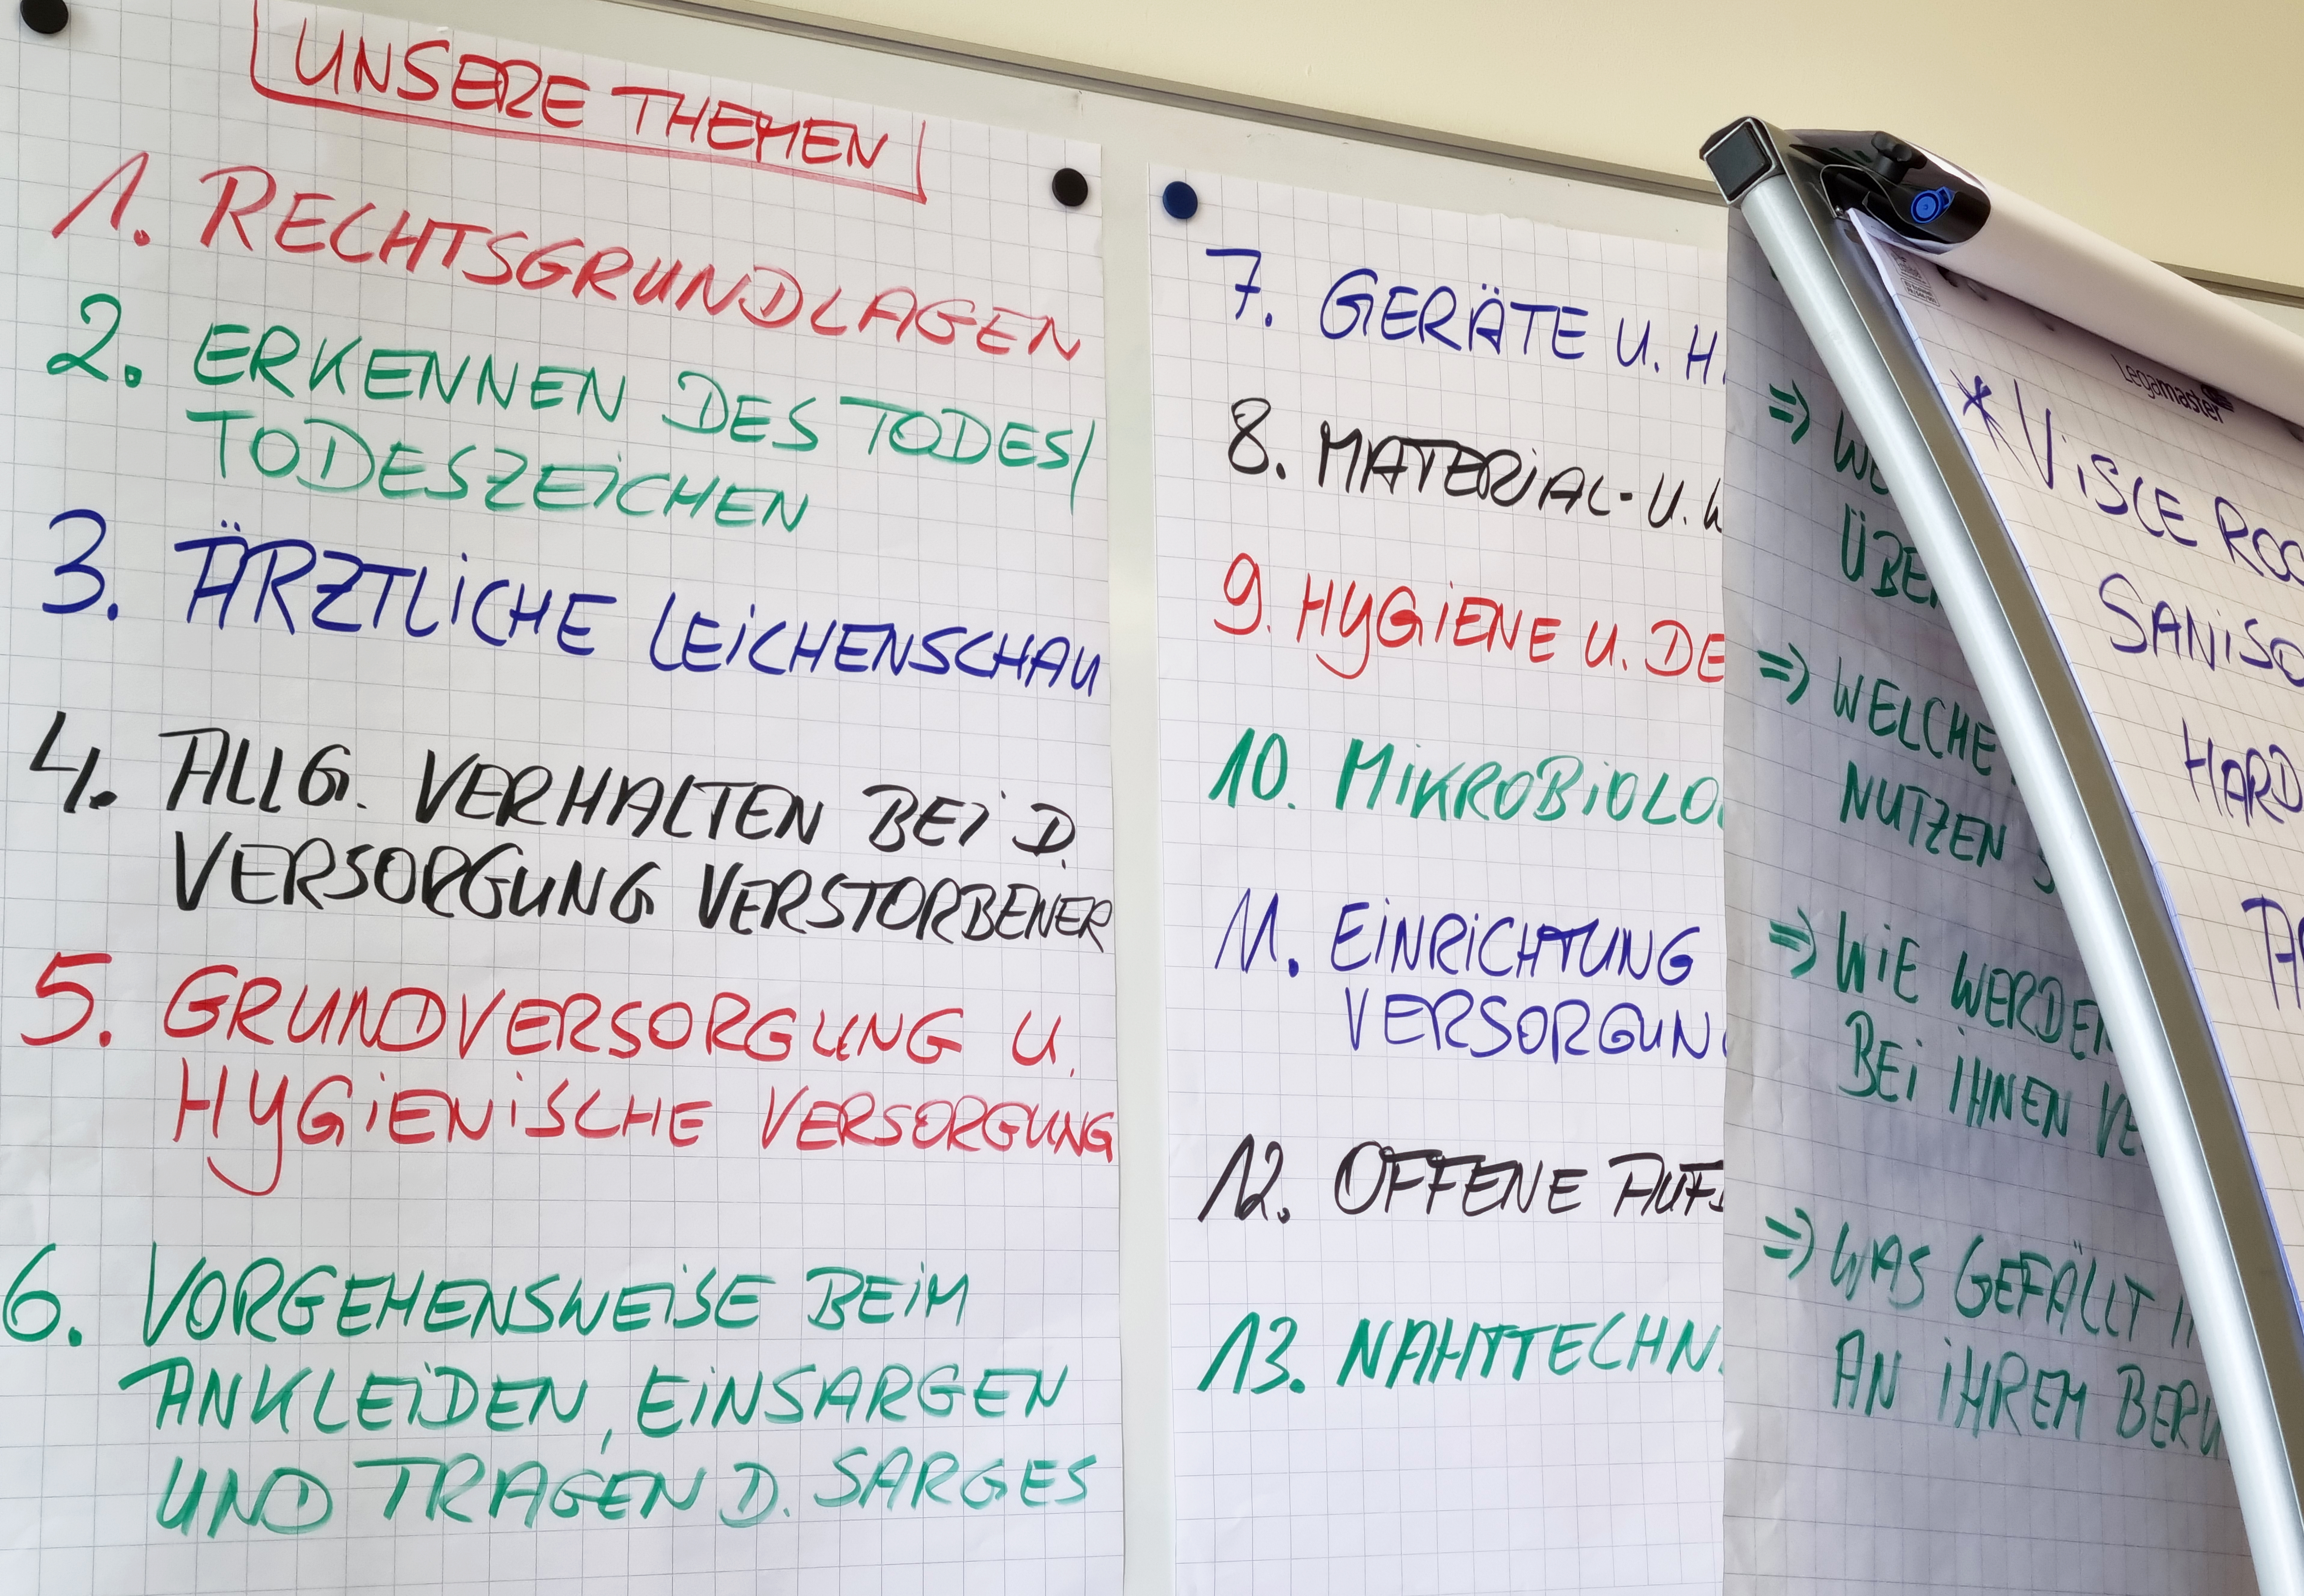 UNSERE THEMEN
1. RECHTSGRUNDLAGEN
2. ERKENNEN DES TODES/
TODESZEICHEN
3. ÄRZTLICHE LEICHENSCHAU
4. ALLG. VERHALTEN BEI D.
VERSORGUNG VERSTORBENER
5. GRUNDVERSORGUNG U.
HYGIENISCHE VERSORGUNG
6. VORGEHENSWEISE BEIM
ANKLEIDEN, EINSARGEN
UND TRAGEN D. SARGES
7. GERÄTE U. H
8. MATERIAL- U.
9. HYGIENE U. DE
10. MIKROBIOLO
11. EINRICHTUNG
VERSORGUN
12. OFFENE AUF
13. NAHTTECHN
=> WE
ÜBE
=> WELCHE
NUTZEN
=> WIE WERDEN
BEI IHNEN VE
=> WAS GEFÄLLT I
AN IHREM BERU
Legamaster
* VISCE ROC
SANISO
HARD